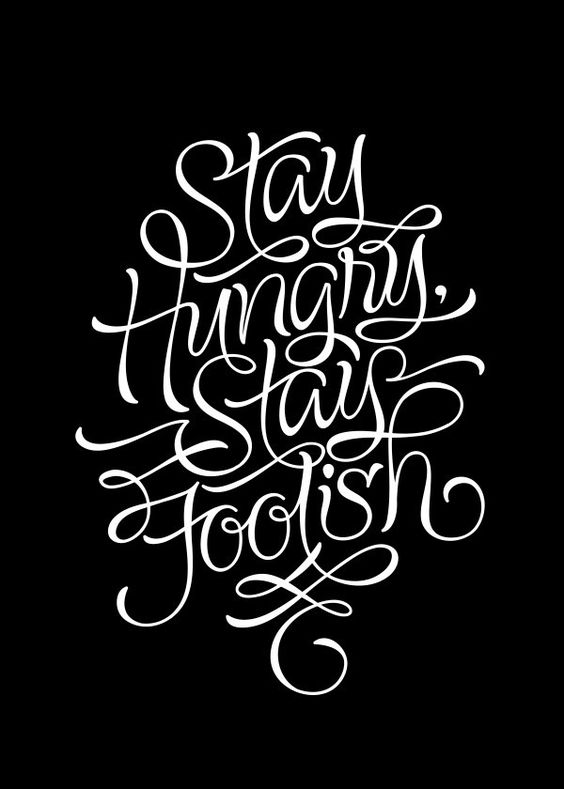 Stay
Hungry,
Stay
Foolish